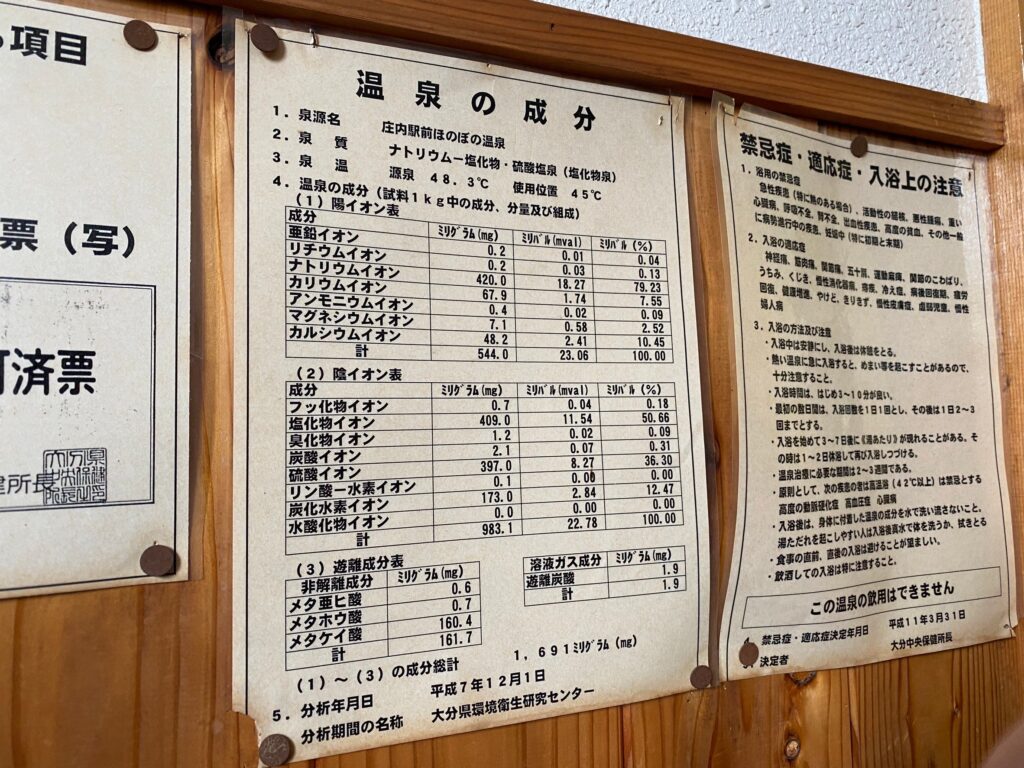 項目
票（写）
済票
所長
温泉の成分
1．泉源名 庄内駅前ほのぼの温泉
2．泉 質 ナトリウムー塩化物・硫酸塩泉（塩化物泉）
3．泉 温 源泉 48．3℃ 使用位置 45℃
4．温泉の成分（試料1kg中の成分、分量及び組成）
（1）陽イオン表
成分 ﾐﾘｸﾞﾗﾑ(mg) ﾐﾘﾊﾞﾙ(mval) ﾐﾘﾊﾞﾙ(%)
亜鉛イオン 0.2 0.01 0.04
リチウムイオン 0.2 0.03 0.13
ナトリウムイオン 420.0 18.27 79.23
カリウムイオン 67.9 1.74 7.55
アンモニウムイオン 0.4 0.02 0.09
マグネシウムイオン 7.1 0.58 2.52
カルシウムイオン 48.2 2.41 10.45
計 544.0 23.06 100.00
（2）陰イオン表
成分 ﾐﾘｸﾞﾗﾑ(mg) ﾐﾘﾊﾞﾙ(mval) ﾐﾘﾊﾞﾙ(%)
フッ化物イオン 0.7 0.04 0.18
塩化物イオン 409.0 11.54 50.66
臭化物イオン 1.2 0.02 0.09
炭酸イオン 2.1 0.07 0.31
硫酸イオン 397.0 8.27 36.30
リン酸ー水素イオン 0.1 0.00 0.00
炭化水素イオン 173.0 2.84 12.47
水酸化物イオン 0.0 0.00 0.00
計 983.1 22.78 100.00
（3）遊離成分表
非解離成分 ﾐﾘｸﾞﾗﾑ(mg)
メタ亜ヒ酸 0.6
メタホウ酸 0.7
メタケイ酸 160.4
計 161.7
溶液ガス成分 ﾐﾘｸﾞﾗﾑ(mg)
遊離炭酸 1.9
計 1.9
（1）～（3）の成分総計 1，691ﾐﾘｸﾞﾗﾑ(mg)
5．分析年月日 平成7年12月1日
分析期間の名称 大分県環境衛生研究センター
禁忌症・適応症・入浴上の注意
1．浴用の禁忌症
急性疾患（特に熱のある場合）、活動性の結核、悪性腫瘍、重い
心臓病、呼吸不全、腎不全、出血性疾患、高度の貧血、その他一般
に病勢進行中の疾患、妊娠中（特に初期と末期）
2．入浴の適応症
神経痛、筋肉痛、関節痛、五十肩、運動麻痺、関節のこわばり、
うちみ、くじき、慢性消化器病、痔疾、冷え症、病後回復期、疲労
回復、健康増進、やけど、きりきず、慢性皮膚症、虚弱児童、慢性
婦人病
3．入浴の方法及び注意
・入浴中は安静にし、入浴後は休憩をとる。
・熱い温泉に急に入浴すると、めまい等を起こすことがあるので、
十分注意すること。
・入浴時間は、はじめ3～10分が良い。
・最初の数日間は、入浴回数を1日1回とし、その後は1日2～3
回までとする。
・入浴を始めて3～7日後に《湯あたり》が現れることがある。そ
の時は1～2日休浴して再び入浴しつづける。
・温泉治療に必要な期間は2～3週間である。
・原則として、次の疾患の者は高温浴（42℃以上）は禁忌とする
高度の動脈硬化症 高血圧症 心臓病
・入浴後は、身体に付着した温泉の成分を水で洗い流さないこと。
湯ただれを起こしやすい人は入浴後真水で体を洗うか、拭きとる
・食事の直前、直後の入浴は避けることが望ましい。
・飲酒しての入浴は特に注意すること。
この温泉の飲用はできません
禁忌症・適応症決定年月日 平成11年3月31日
決定者 大分中央保健所長